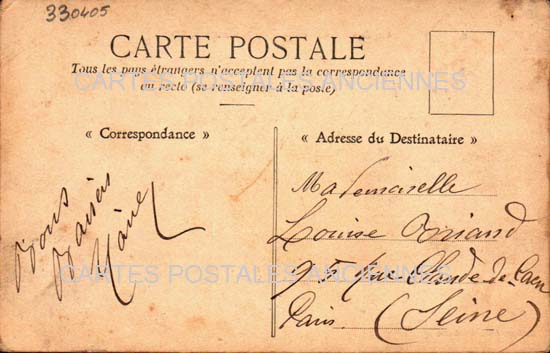 330405
CARTE POSTALE
Tous les pays étrangers n'acceptent pas la correspondance
au recto (se renseigner à la poste)
CARTES POSTALES ANCIENNES
« Correspondance »
« Adresse du Destinataire »
Bons
Baisers
Mademoiselle
Louise Briand
Rue Claude-de-Caen
Paris (Seine)
CARTES POSTALES ANCIENNES